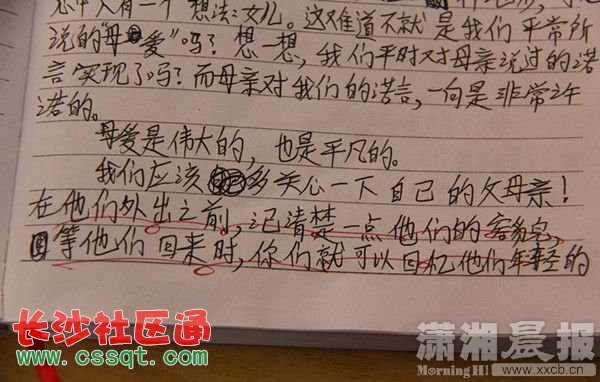 有一个想法:女儿。这难道不就是我们平常所
说的“母爱”吗?想一想,我们平时对母亲说过的诺
言实现了吗?而母亲对我们的诺言,一向是非常之午
诺的。
母爱是伟大的,也是平凡的。
我们应该多关心一下自己的父母亲!
在他们外出之前,记清楚一点他们的容貌,
等他们回来时,你们就可以回忆他们年轻的
长沙社区通
www.cssqt.com
潇湘晨报
Morning H!
www.xxcb.cn